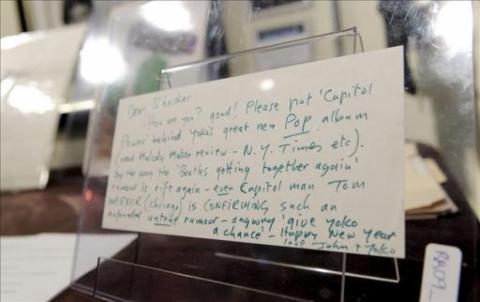 Dear Strocker
How are you? good! Please put 'Capitol
Power' behind Yoko's great new Pop album
(read Melody Maker review - N.Y. Times etc).
by the way the 'Beatles getting together again'
rumour is rift again - even Capitol man Tom
(Chicago) is CONFIRMING such an
untrue rumour - anyway 'give Yoko
a chance' - Happy New Year
love John + Yoko